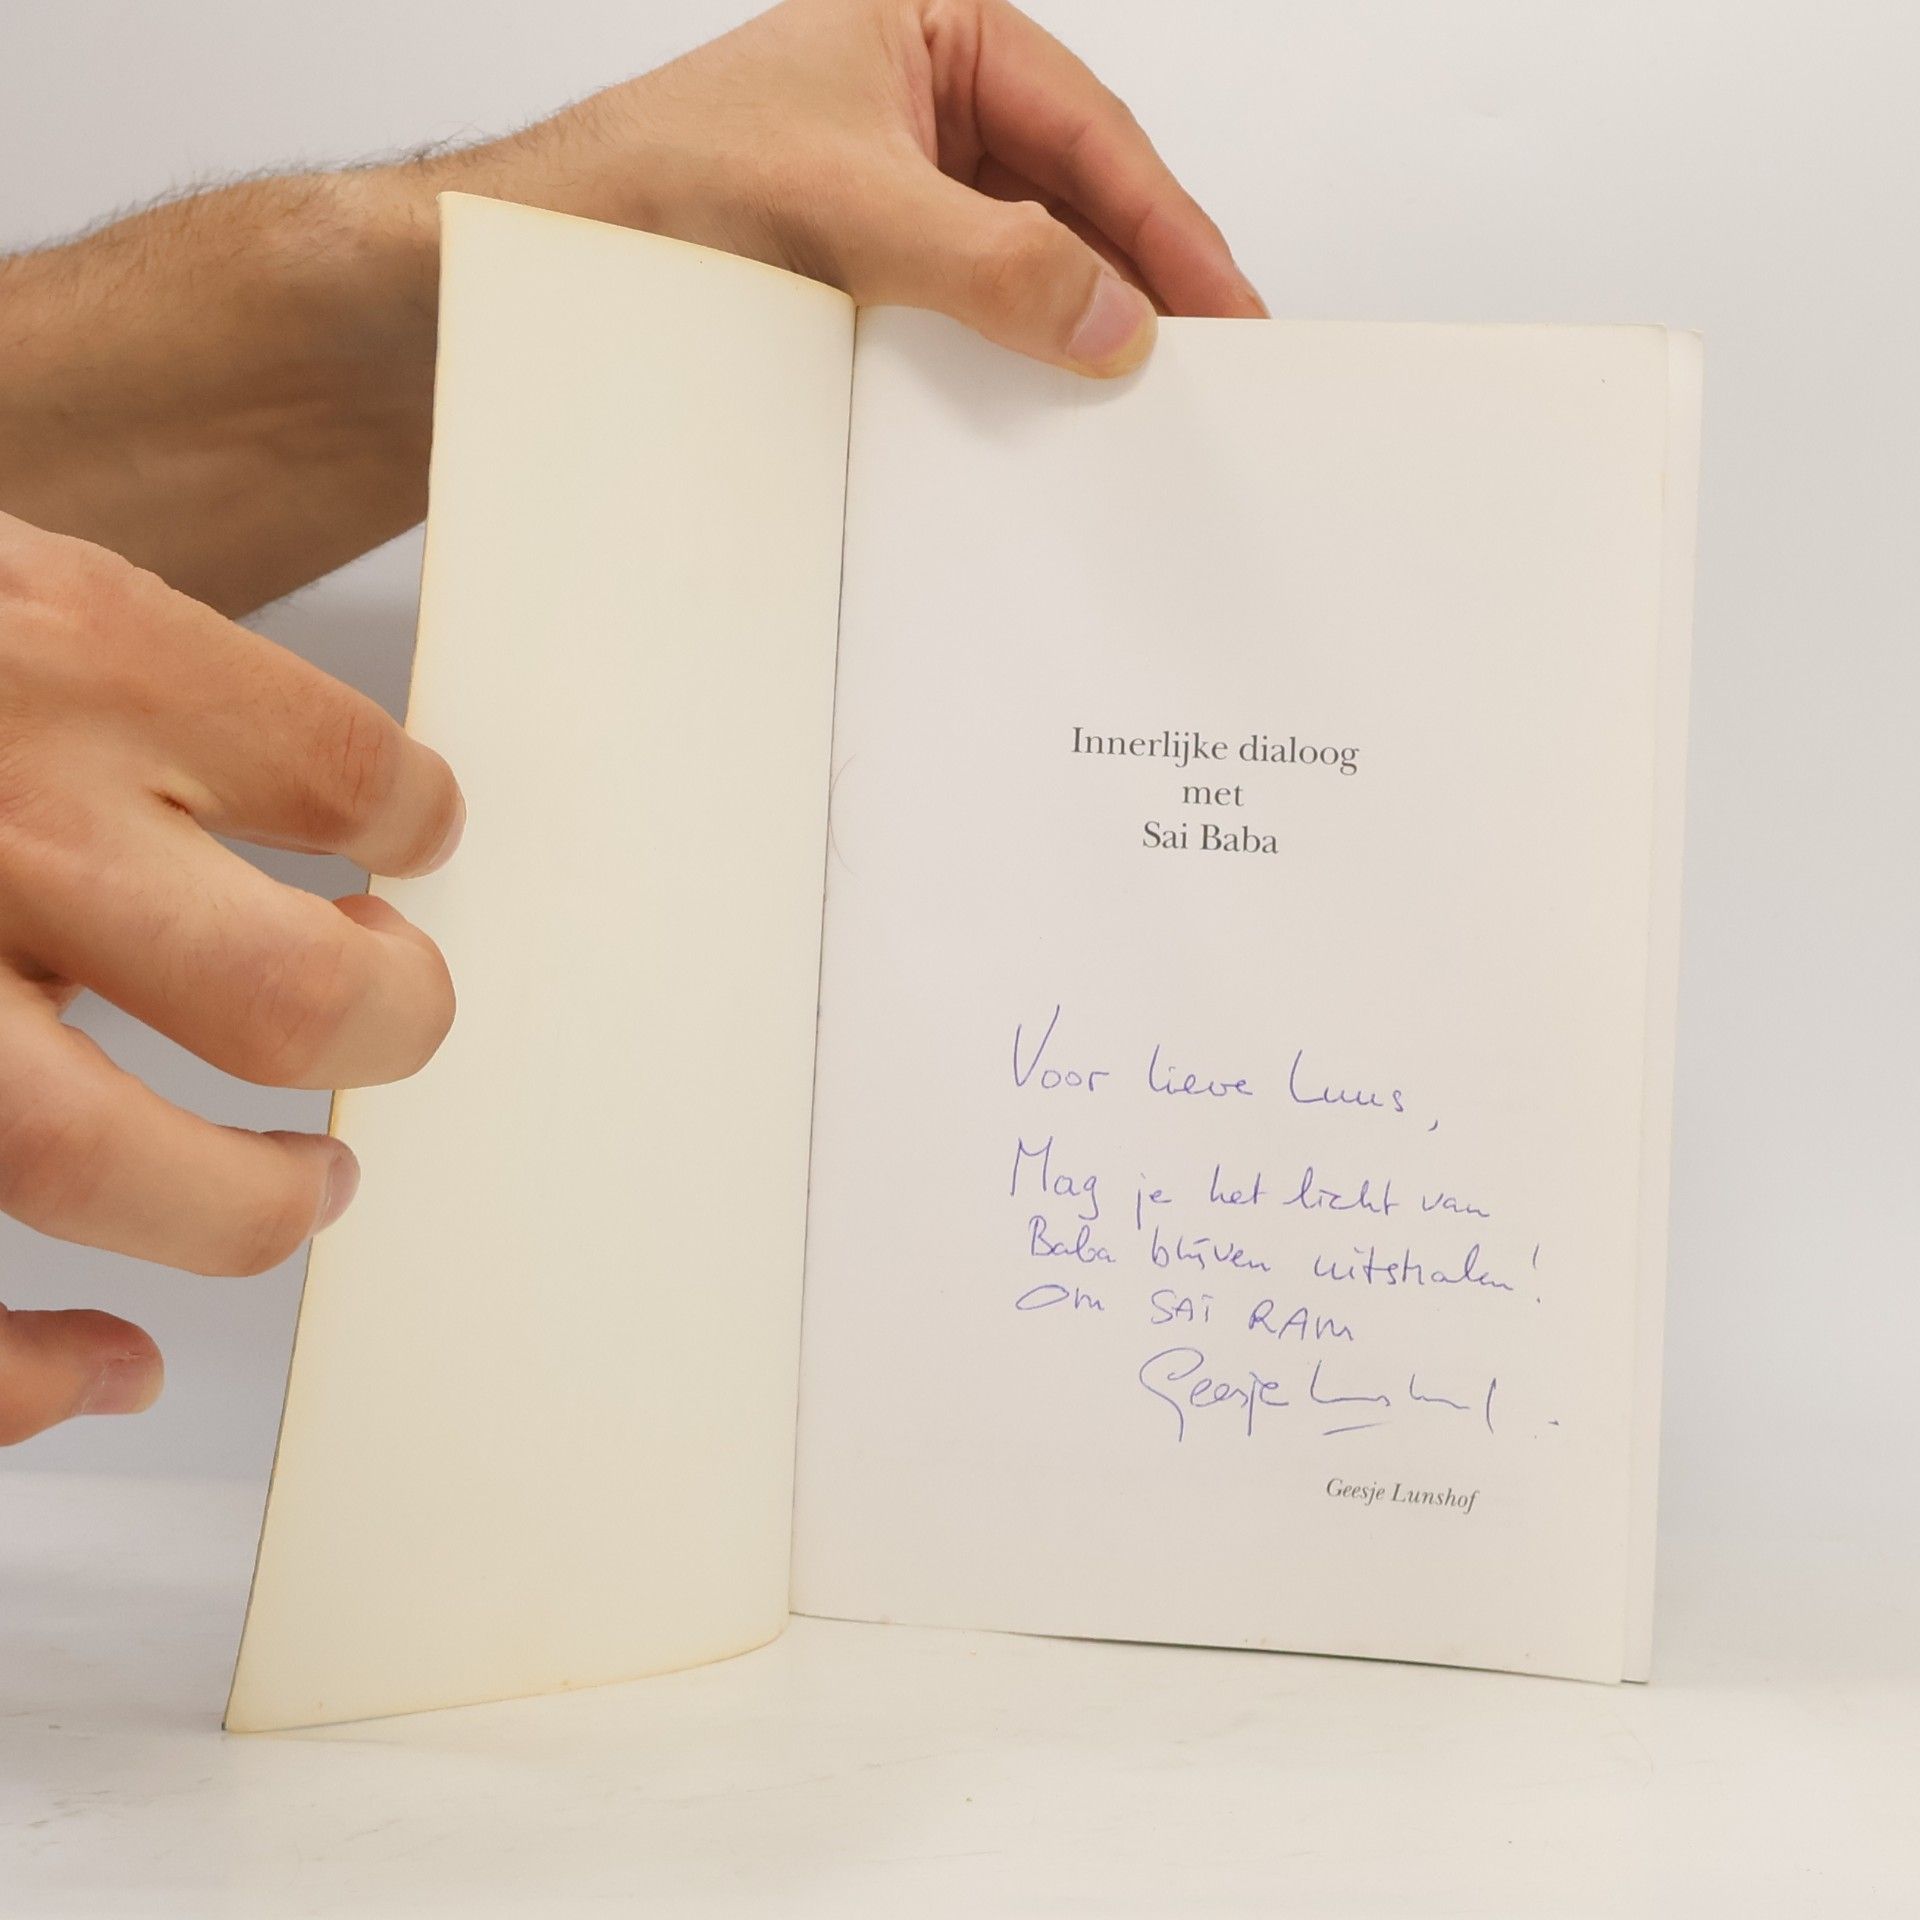 Innerlijke dialoog
met
Sai Baba
Voor lieve Luus,
Mag je het licht van
Baba blijven uitstralen!
Om SAI RAM
Geesje Lunshof.
Geesje Lunshof